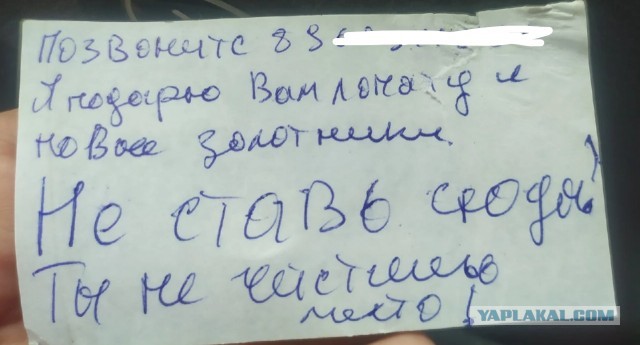 Позвоните 89
Я подарю Вам лопату и
новые золотники.
Не ставь сюда!
Ты не чистишь
место!
YAPLAKAL.COM